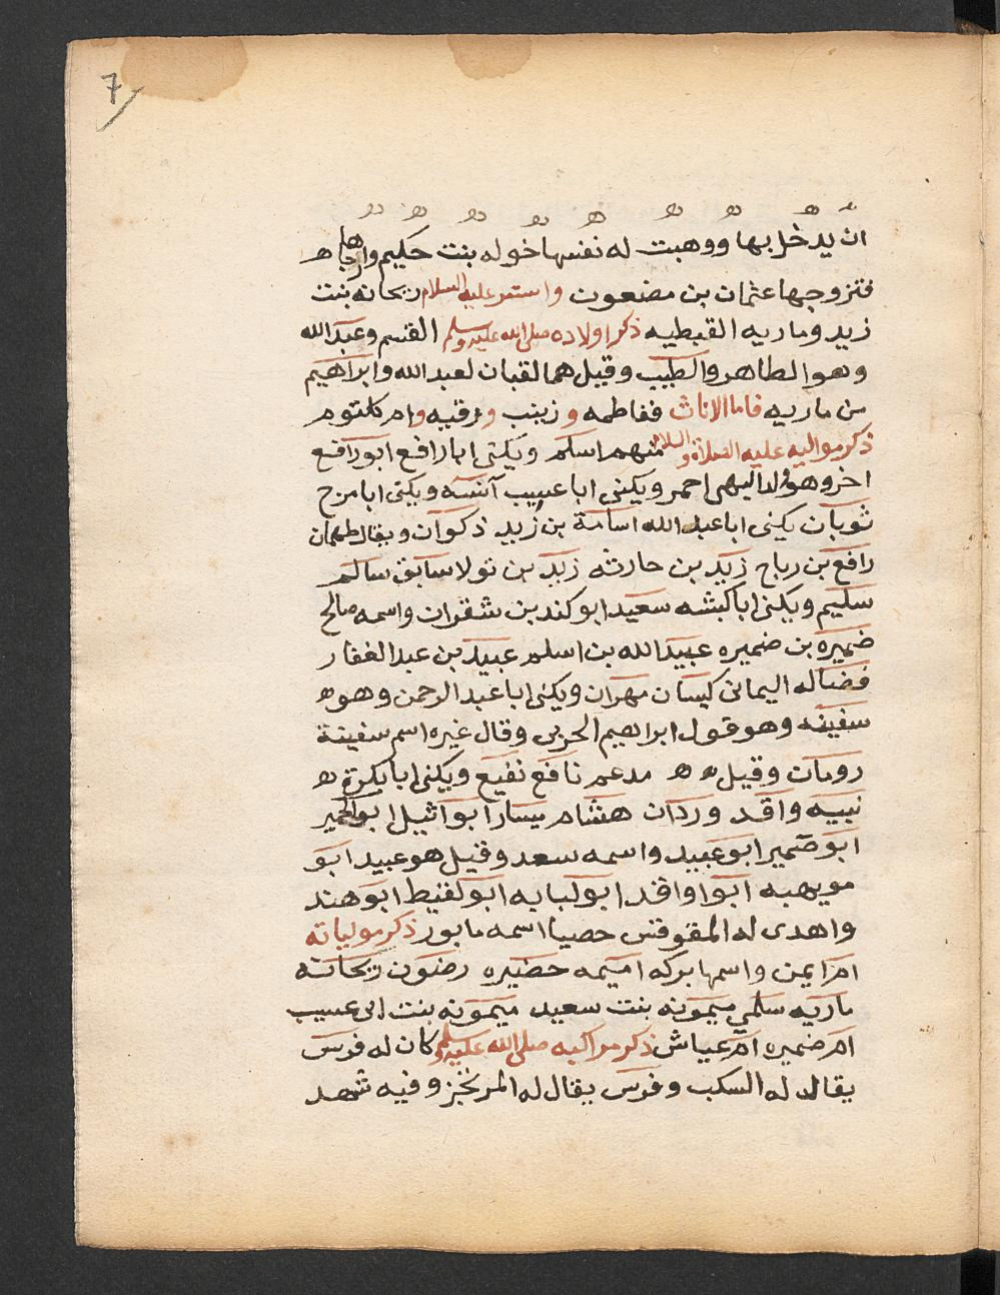 7
ان يدخل بها ووهبت له نفسها خوله بنت حكيم وارجاها
فتزوجها عثمان بن مضعون واستسر عليه السلام ريحانه بنت
زيد وماريه القبطيه ذكر اولاده صلى الله عليه وسلم القسم وعبد الله
وهو الطاهر والطيب وقيل هما لقبان لعبد الله وابراهيم
من ماريه فاما الاناث ففاطمه و زينب و رقيه وام كلثوم
ذكر مواليه عليه الصلاة والسلام منهم اسلم ويكنى ابا رافع ابو رافع
اخر وهو والد البهى احمر ويكنى ابا عسيب آنسه ويكنى ابا مرح
ثوبان يكنى ابا عبد الله اسامة بن زيد ذكوان ويقال طهمان
رافع بن رباح زيد بن حارثه زيد بن نولا سابق سالم
سليم ويكنى ابا كبشه سعيد ابو كندبن شقران واسمه صالح
ضميره بن ضميره عبيد الله بن اسلم عبيد بن عبد الغفار
فضاله اليمانى كيسان مهران ويكنى ابا عبد الرحمن وهو ه
سفينه وهو قول ابراهيم الحربى وقال غيره اسم سفينة
رومان وقيل ه ه مدعم نافع نفيع ويكنى ابا بكرة ه
نبيه واقد وردان هشام يسار ابو اثيل ابو الحمير
ابو ضمير ابو عبيد واسمه سعد وقيل هو عبيد ابو
مويهبه ابو اواقد ابو لبابه ابو لقيط ابو هند
واهدى له المقوقس خصيا اسمه مابور ذكر مولياته
ام ايمن واسمها بركه اميمه حضيره رضون ريحانه
ماريه سلمى ميمونه بنت سعيد ميمونه بنت ابى عسيب
ام ضميره ام عياش ذكر مراكبه صلى الله عليه وسلم كان له فرس
يقال له السكب وفرس يقال له المرتجز وفيه شهد